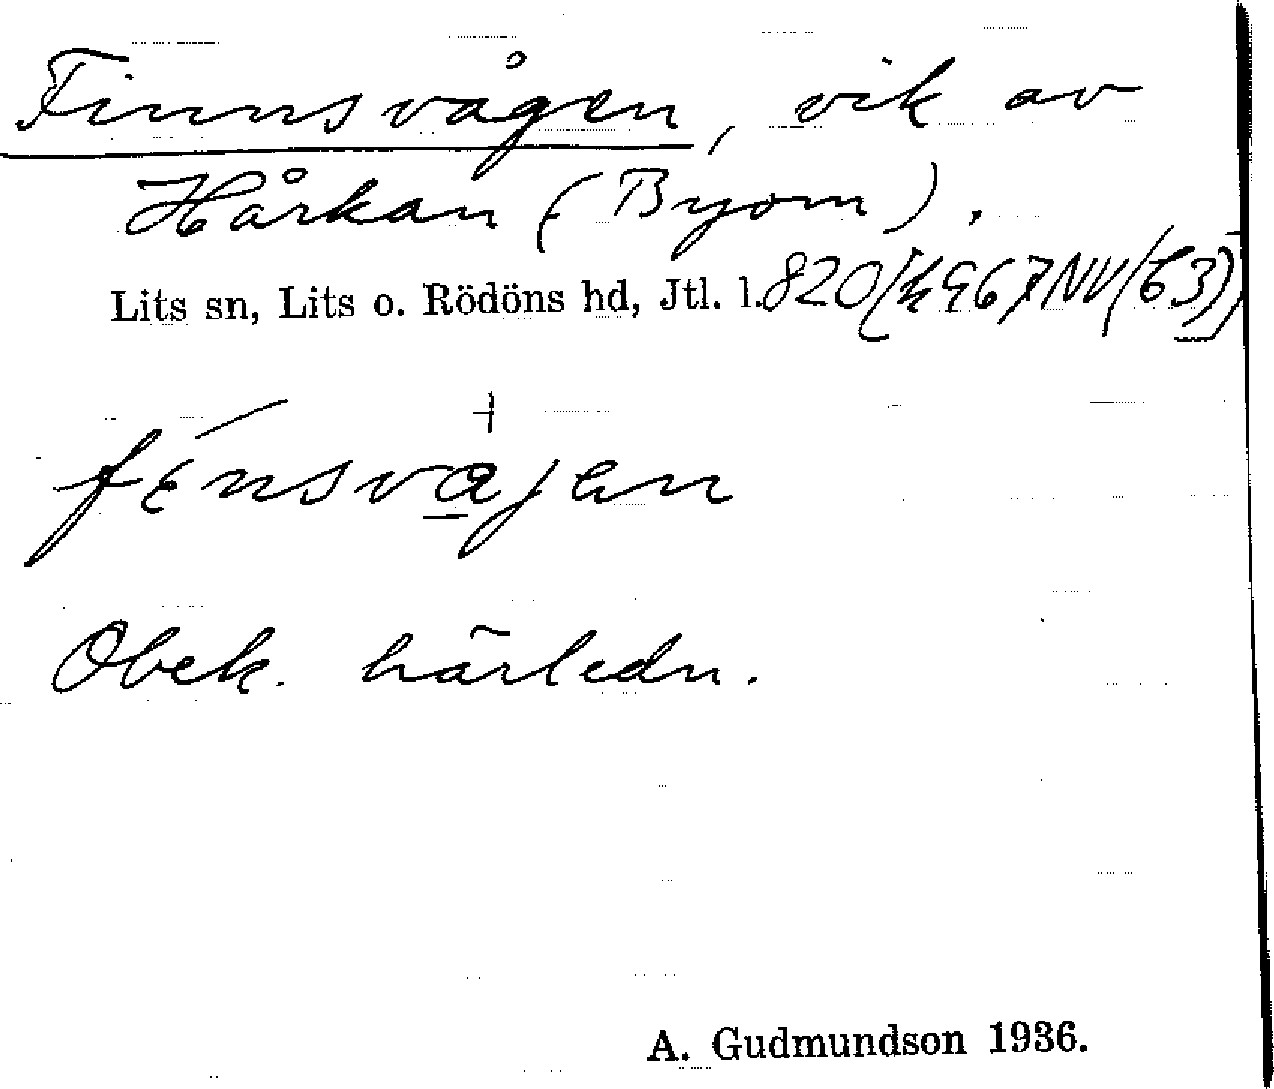 Finnsvågen, vik av
Hårkan (Byom).
Lits sn, Lits o. Rödöns hd, Jtl. l. 820
fɛ́nsvajen
Obek. härledn.
A. Gudmundson 1936.